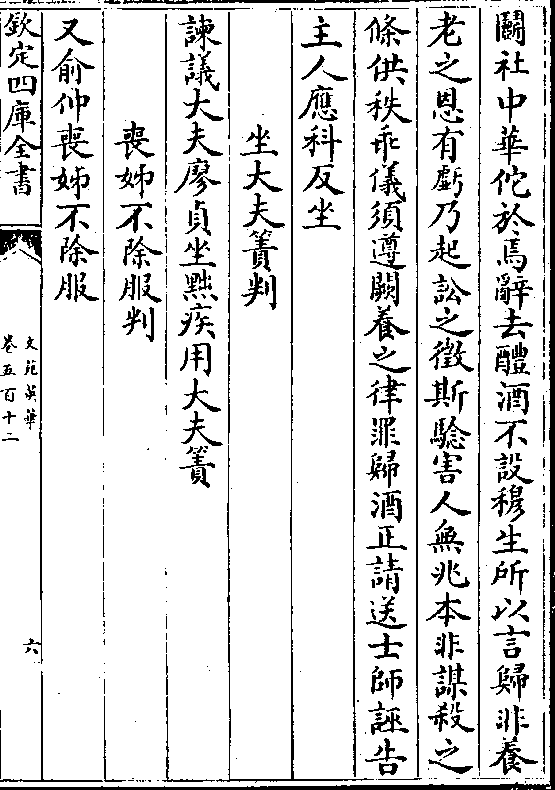 鬭社中華佗於焉辭去醴酒不設穆生所以言歸非養
老之恩有虧乃起訟之徵斯驗害人無兆本非謀殺之
條供秩乖儀須遵闕養之律罪歸酒正請送士師誣告
主人應科反坐
坐大夫簀判
諫議大夫廖貞坐㸃疾用大夫簀
喪姊不除服判
又俞仲喪姊不除服
欽定四庫全書
文苑英華
卷五百十二
六